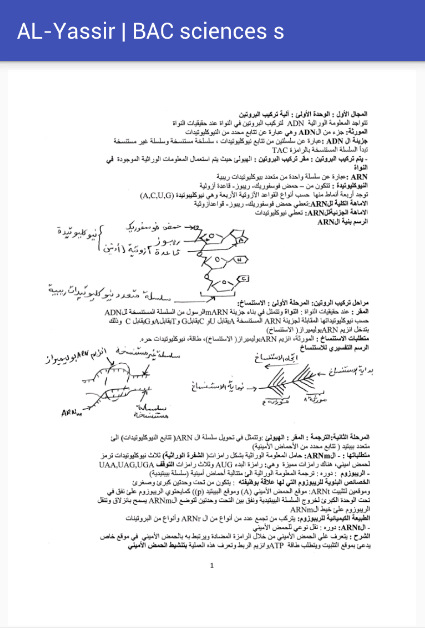 AL-Yassir | BAC sciences s
المجال الأول : الوحدة الأولى : آلية تركيب البروتين
تتواجد المعلومة الوراثية ADN لتركيب البروتين في النواة عند حقيقيات النواة
المورثة: جزء من الADN وهي عبارة عن تتابع محدد من النيوكليوتيدات
جزيئة ال ADN :عبارة عن سلسلتين من تتابع نيوكليوتيدات ، سلسلة مستنسخة وسلسلة غير مستنسخة
تبدأ السلسلة المستنسخة بالرامزة TAC
- يتم تركيب البروتين : مقر تركيب البروتين : الهيولى حيث يتم استعمال المعلومات الوراثية الموجودة في
النواة
ARN :عبارة عن سلسلة واحدة من متعدد نيوكليوتيدات ريبية
النيوكليوتيدة : تتكون من – حمض فوسفوريك، ريبوز- قاعدة أزوتية
توجد أربعة أنماط منها حسب أنواع القواعد الأزوتية الأربعة وهي نيوكليوتيدة (A,C,U,G)
الاماهة الكلية للARN:تعطي حمض فوسفوريك، ريبوز- قواعدأزوتية
الاماهة الجزئيةللARN: تعطي نيوكليوتيدات
الرسم بنية الARN
حمض فوسفوريك
ريبوز
قاعدة أزوتية (أدنين)
نيوكليوتيدة
سلسلة متعدد نيوكليوتيدات ريبية
مراحل تركيب البروتين: المرحلة الأولى : الاستنساخ:
المقر : عند حقيقيات النواة : النواة وتتمثل في بناء جزيئة mARNالرسول من السلسلة المستنسخة للADN
حسب نيوكليوتيداتها المقابلة لجزيئة ARN المستنسخة
يتدخل انزيم ARNبوليميراز( الاستنساخ)
متطلبات الاستنساخ : المورثة، انزيم ARNبوليميراز( الاستنساخ)، طاقة، نيوكليوتيدات حرة.
الرسم التفسيري للاستنساخ
بداية الاستنساخ
اتجاه الاستنساخ
نهاية الاستنساخ
انزيم ARN بوليميراز
ARNm
سلسلة مستنسخة
المرحلة الثانية:الترجمة : المقر : الهيولى :وتتمثل في تحويل سلسلة ال ARN( تتابع النيوكليوتيدات) الى
متعدد ببتيد ( تتابع محدد من الأحماض الأمينية)
متطلباتها : - الARNm: حامل المعلومة الوراثية بشكل رامزات( الشفرة الوراثية) ثلاث نيوكليوتيدات ترمز
لحمض اميني، هناك رامزات مميزة وهي: رامزة البدء AUG وثلاث رامزات التوقف UAA,UAG,UGA
- الريبوزوم : دوره : ترجمة المعلومة الوراثية الى متتالية أحماض أمينية (سلسلة ببتيدية)
الخصائص البنيوية للريبوزوم التي لها علاقة بوظيفته : يتكون من تحت وحدتين كبرى وصغرى
وموقعين لتثبيت ARNt: موقع الحمض الأميني (A) وموقع الببتيد (p) كمايحتوي الريبوزوم على نفق في
تحت الوحدة الكبرى لخروج السلسلة الببتيدية ونفق بين التحت وحدتين لتوضع الARNm يسمح بانزلاق وتنقل
الريبوزوم على خيط الARNm
الطبيعة الكيميائية للريبوزوم: يتركب من تجمع عدد من أنواع من ال ARNr وأنواع من البروتينات
- الARNt: دوره : نقل نوعي للحمض الأميني
الشرح : يتعرف على الحمض الأميني من خلال الرامزة المضادة ويرتبط به بالحمض الأميني في موقع خاص
يدعى بموقع التثبيت ويتطلب طاقة ATPوانزيم الربط وتعرف هذه العملية بتنشيط الحمض الأميني
1